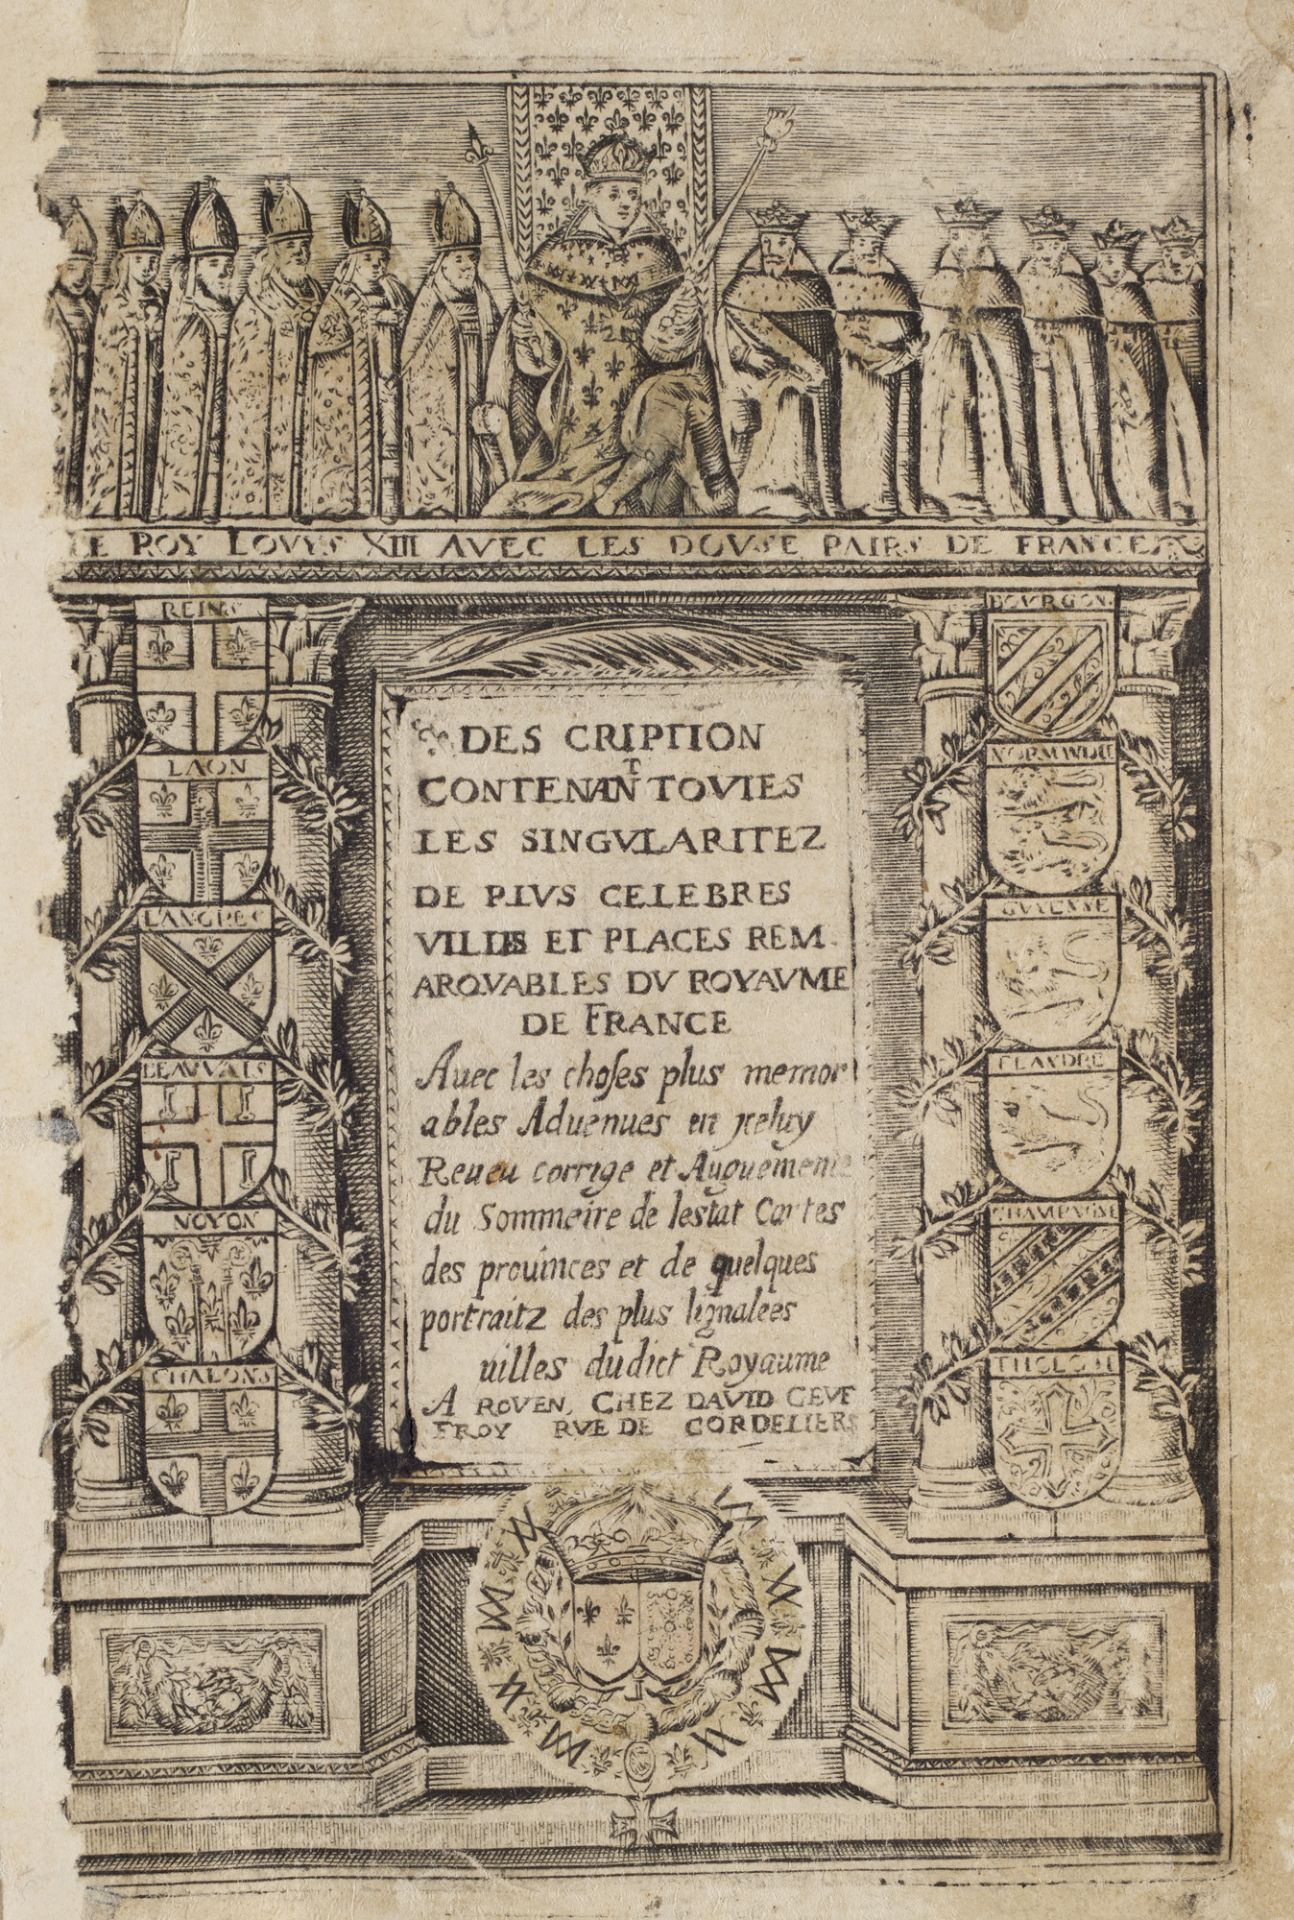 LE ROY LOVYS XIII AVEC LES DOVSE PAIRS DE FRANCE
REINS
LAON
LANGREC
BEAVVAIS
NOYON
CHALONS
BOVRGON
NORMNDIE
GUYENNE
FLANDRE
CHAMPAGNE
THOLOSE
DES CRIPTION
CONTENANT TOVTES
LES SINGVLARITEZ
DE PLVS CELEBRES
VILLES ET PLACES REM
ARQVABLES DV ROYAVME
DE FRANCE
Auec les choses plus memor
ables Aduenues en jceluy
Reueu corrige et Augmente
du Sommeire de lestat Cartes
des prouinces et de quelques
portraitz des plus signalees
villes dudict Royaume
A ROVEN, CHEZ DAVID GEVF
FROY RVE DE CORDELIERS